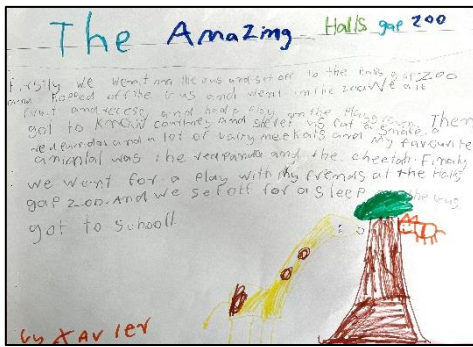 The Amazing Halls gap zoo
Firstly we went on the bus and set off to the Halls gap ZOO
hopped off the bus and went in the zoo we ate
fruit and recess and had a play on the playgroun. Then
got to know and pat a snake. a
red panda and a lot of meekats and My favourite
animal was the red panda and the cheetah. Finaly
we went for a play with my frends at the Halls
gap zoo. And we set off for a sleep on the bus
got to School!
by XAVIER